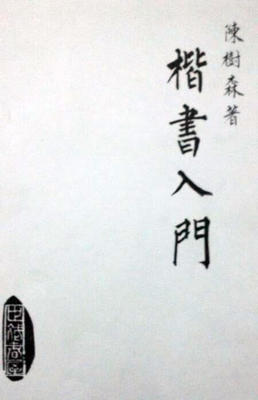 陳樹森著
楷書入門